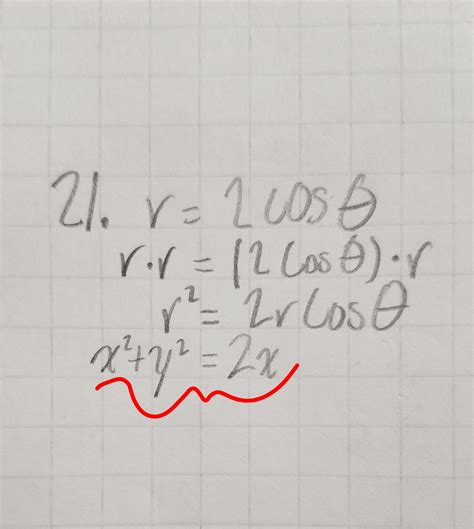 21. r = 2 cos θ
r·r = (2 cos θ)·r
r² = 2r cos θ
x² + y² = 2x